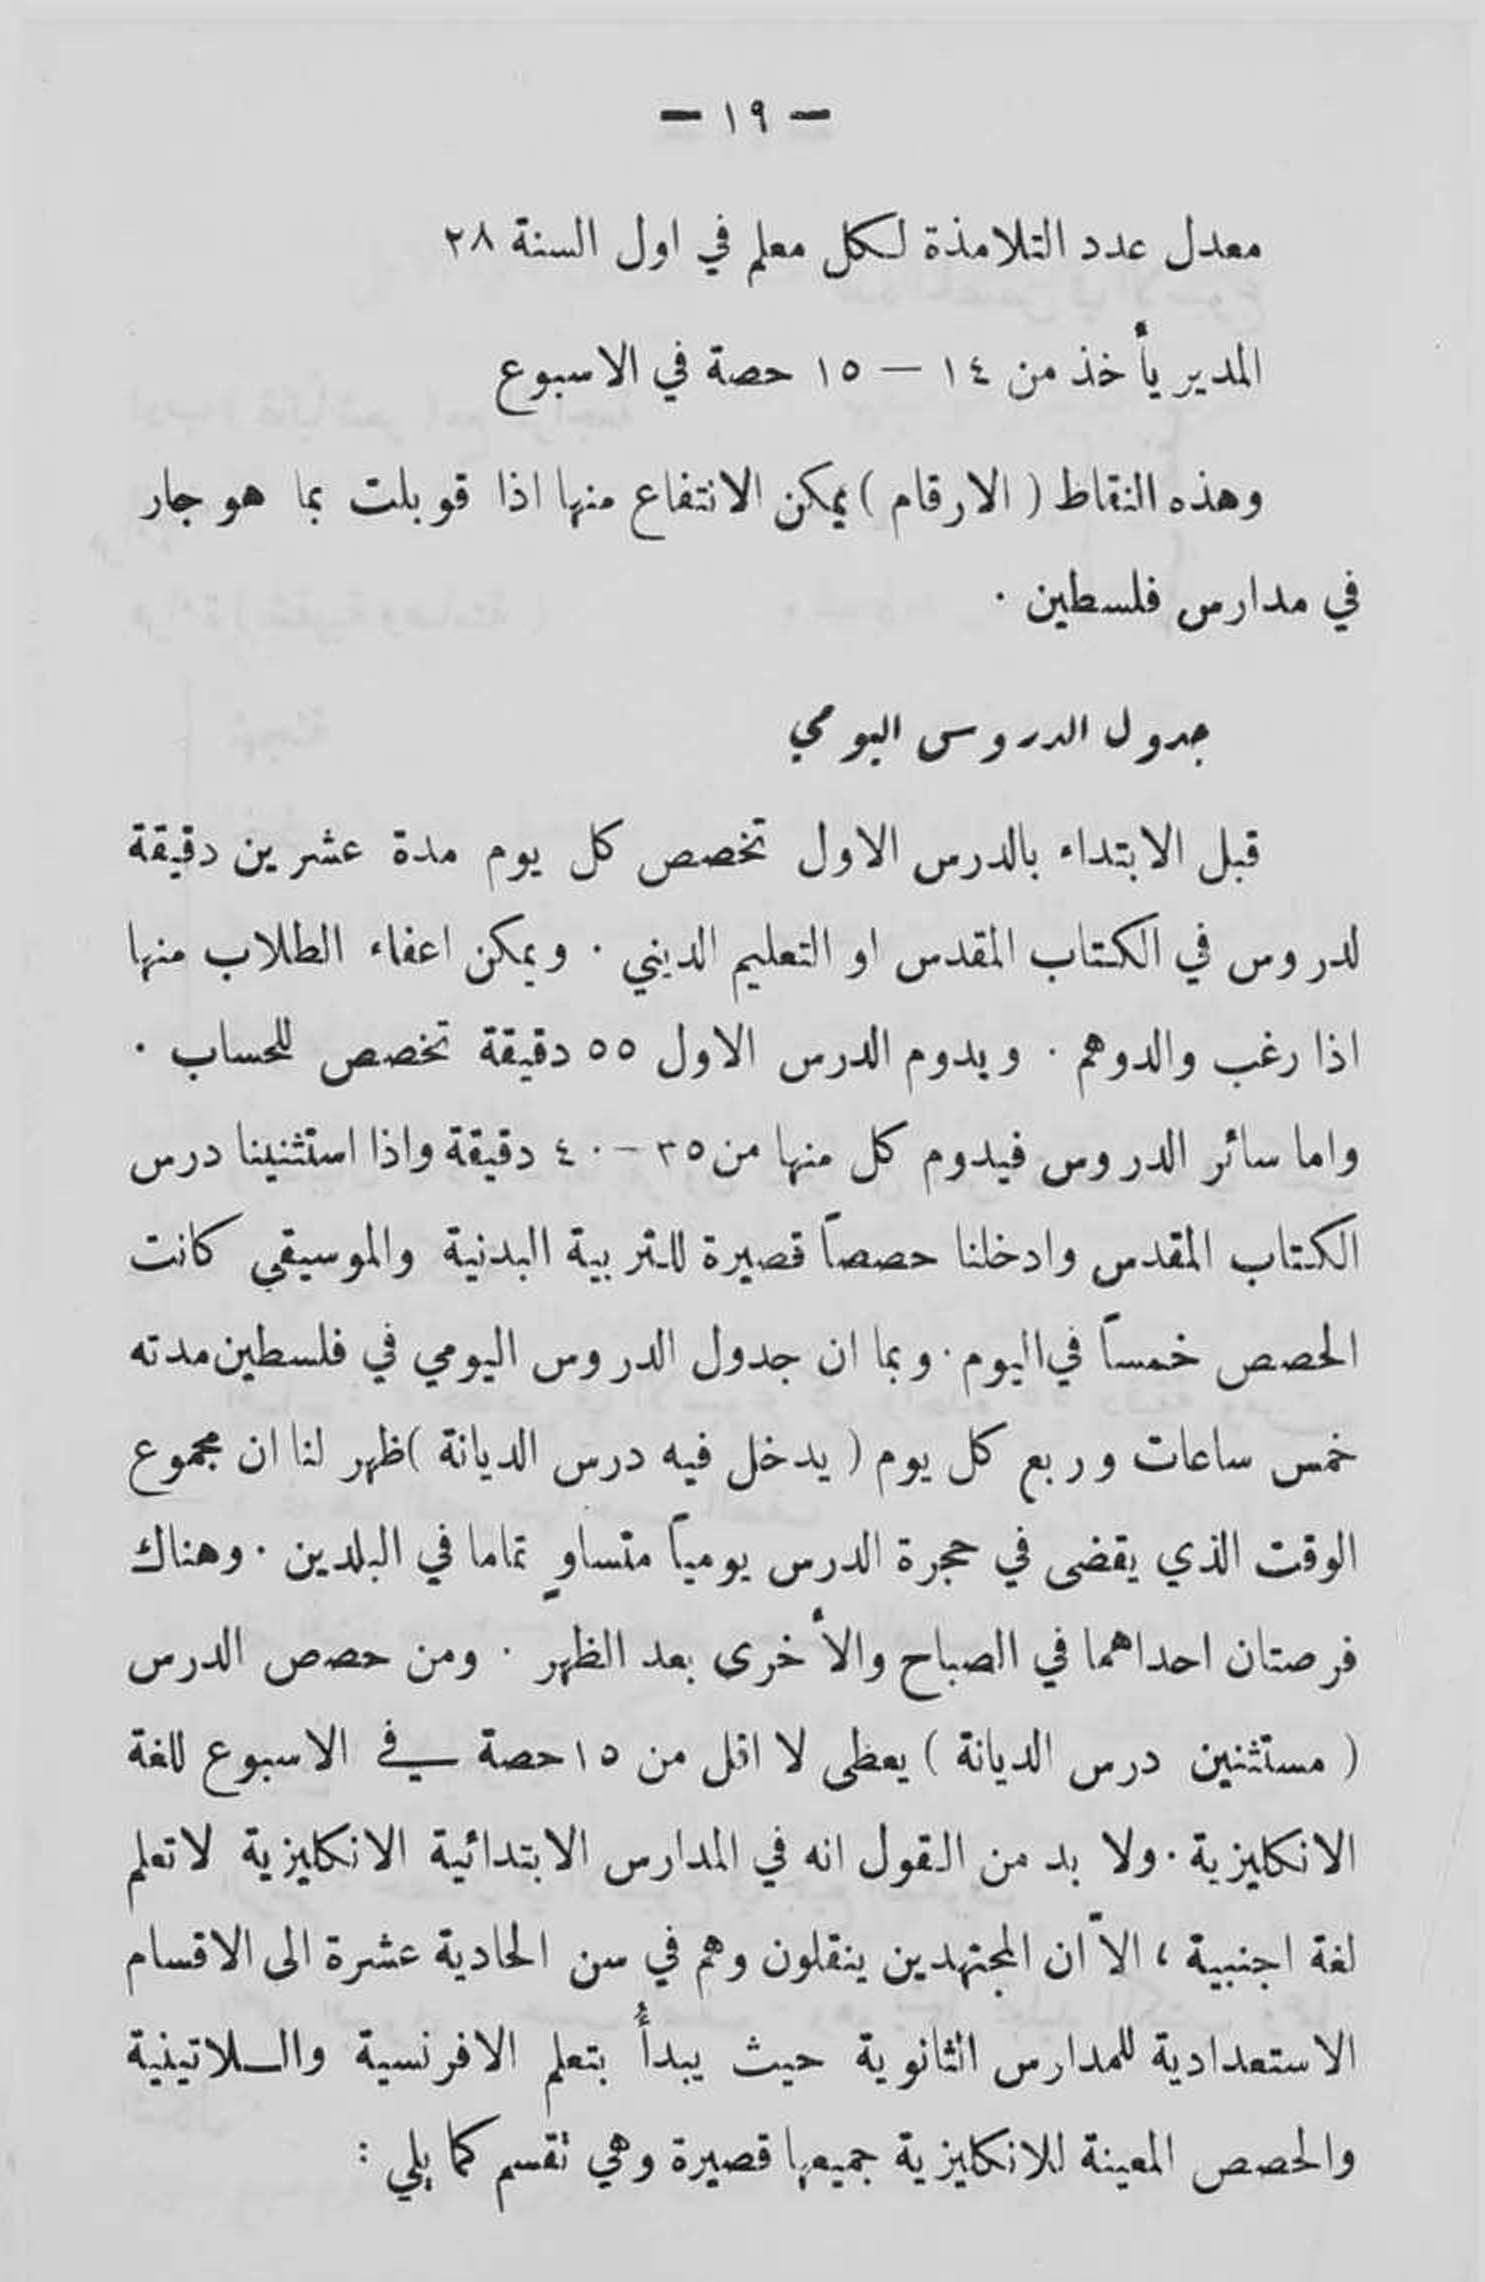 — ١٩ —
معدل عدد التلامذة لكل معلم في اول السنة ٢٨
المدير يأخذ من ١٤ — ١٥ حصة في الاسبوع
وهذه النقاط ( الارقام ) يمكن الانتفاع منها اذا قوبلت بما هو جار
في مدارس فلسطين .
جدول الدروس اليومي
قبل الابتداء بالدرس الاول تخصص كل يوم مدة عشرين دقيقة
لدروس في الكتاب المقدس او التعليم الديني . ويمكن اعفاء الطلاب منها
اذا رغب والدوهم . ويدوم الدرس الاول ٥٥ دقيقة تخصص للحساب .
واما سائر الدروس فيدوم كل منها من ٣٥ – ٤٠ دقيقة واذا استثنينا درس
الكتاب المقدس وادخلنا حصصاً قصيرة للتربية البدنية والموسيقى كانت
الحصص خمساً في اليوم . وبما ان جدول الدروس اليومي في فلسطين مدته
خمس ساعات وربع كل يوم ( يدخل فيه درس الديانة ) ظهر لنا ان مجموع
الوقت الذي يقضى في حجرة الدرس يومياً متساوٍ تماما في البلدين . وهناك
فرصتان احداهما في الصباح والأخرى بعد الظهر . ومن حصص الدرس
( مستثنين درس الديانة ) يعطى لا اقل من ١٥ حصة في الاسبوع للغة
الانكليزية . ولا بد من القول انه في المدارس الابتدائية الانكليزية لا تعلم
لغة اجنبية ، الاّ ان المجتهدين ينقلون وهم في سن الحادية عشرة الى الاقسام
الاستعدادية للمدارس الثانوية حيث يبدأُ بتعلم الافرنسية واللاتينية
والحصص المعينة للانكليزية جميعها قصيرة وهي تقسم كما يلي :